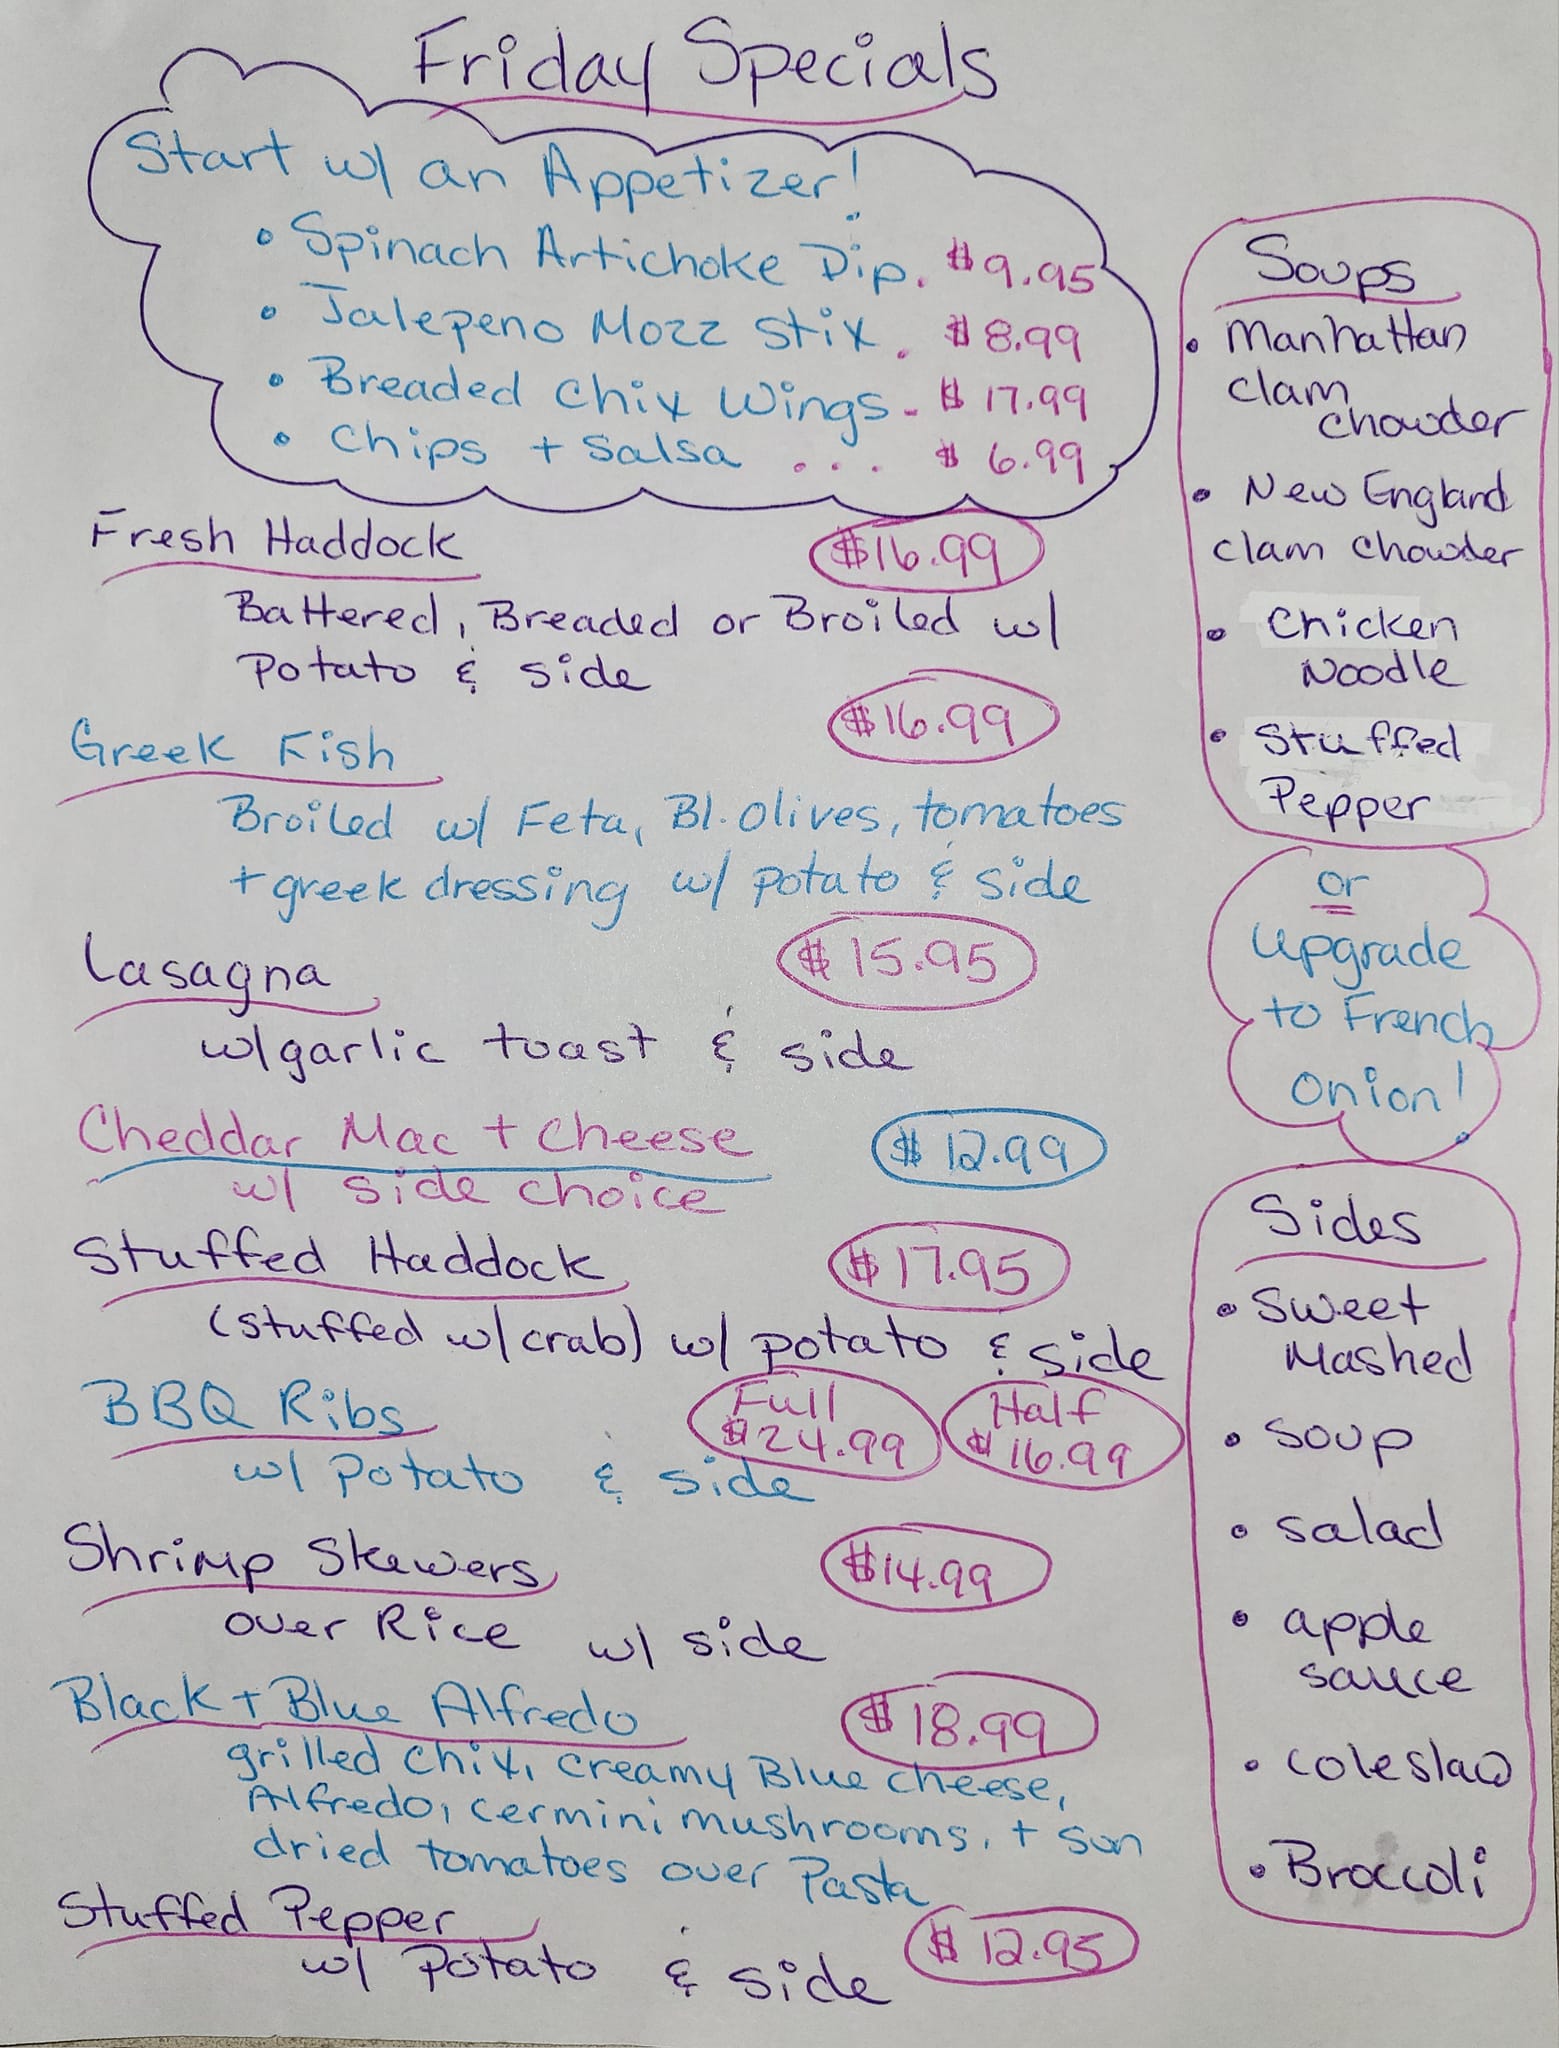 Friday Specials
Start w/ an Appetizer!
• Spinach Artichoke Dip. $9.95
• Jalepeno Mozz Stix. $8.99
• Breaded Chix Wings- $17.99
• Chips + Salsa ... $6.99
Fresh Haddock $16.99
Battered, Breaded or Broiled w/
Potato & side
Greek Fish $16.99
Broiled w/ Feta, Bl. olives, tomatoes
+ greek dressing w/ potato & side
Lasagna $15.95
w/garlic toast & side
Cheddar Mac + cheese $12.99
w/ side choice
Stuffed Haddock $17.95
(stuffed w/crab) w/ potato & side
BBQ Ribs Full $24.99 Half $16.99
w/ potato & side
Shrimp Skewers $14.99
over Rice w/ side
Black + Blue Alfredo $18.99
grilled chix, creamy Blue cheese,
Alfredo, cermini mushrooms, + sun
dried tomatoes over Pasta
Stuffed Pepper $12.95
w/ Potato & side
Soups
• Manhattan
clam
chowder
• New England
clam chowder
• Chicken
Noodle
• Stuffed
Pepper
or
upgrade
to French
onion!
Sides
• Sweet
Mashed
• soup
• salad
• apple
sauce
• coleslaw
• Broccoli